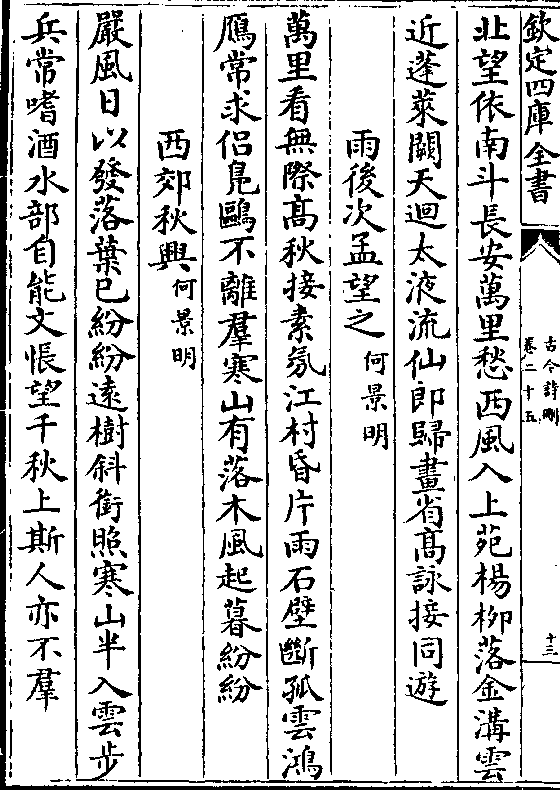 欽定四庫全書
古今詩刪
卷二十五
十三
北望依南斗長安萬里愁西風入上苑楊柳落金溝雲
近蓬萊闕天迴太液流仙郎歸畫省髙詠接同遊
雨後次孟望之
何景明
萬里看無際髙秋接素氛江村昏片雨石壁斷孤雲鴻
鴈常求侣鳧鷗不離羣寒山有落木風起暮紛紛
西郊秋興
何景明
嚴風日以發落葉已紛紛逺樹斜銜照寒山半入雲步
兵常嗜酒水部自能文悵望千秋上斯人亦不羣